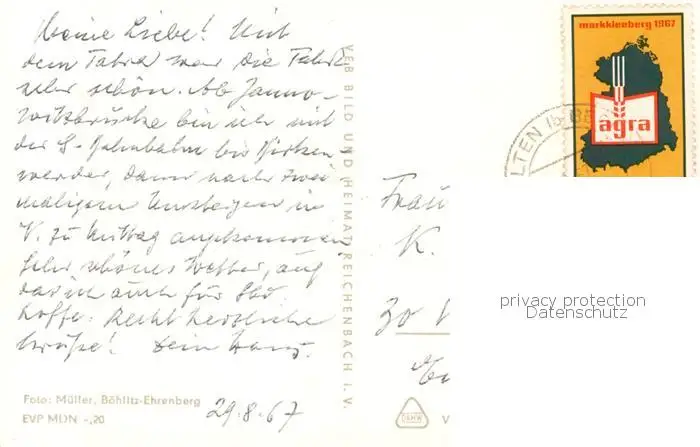 Meine Liebe! Mit
dem Fahrt war die Fahrt
sehr schön. Ab Janno-
witzbrücke bin ich mit
der S-Bahn bis Birken-
werder, dann nach zwei
maligem Umsteigen in
V. zu Mittag angekommen
Sehr schönes Wetter, auf
das ich auch für
hoffe. Recht herzliche
Grüße! Dein Hans.
Foto: Müller, Böhlitz-Ehrenberg
EVP MDN -,20
29.8.67
VEB BILD UND HEIMAT REICHENBACH I. V.
markkleeberg 1967
agra
LTEN
Frau
K.
privacy protection
Datenschutz
DAHW
V